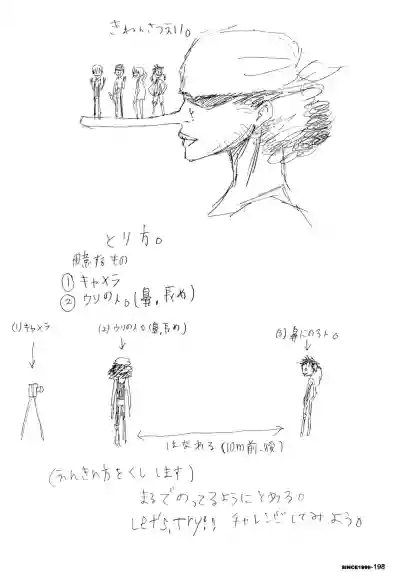 きねんさつえい。
とり方。
用意するもの
① キャメラ
② ウソの人。(鼻、長め)
(1)キャメラ
(2)ウソの人。(鼻、長め)
(3)鼻にのる人。
はなれる(10m前後)
(えんきん方をくしします)
まるでのってるようにとれる。
Let's,Try!! チャレンジしてみよう。
SINCE1999-198